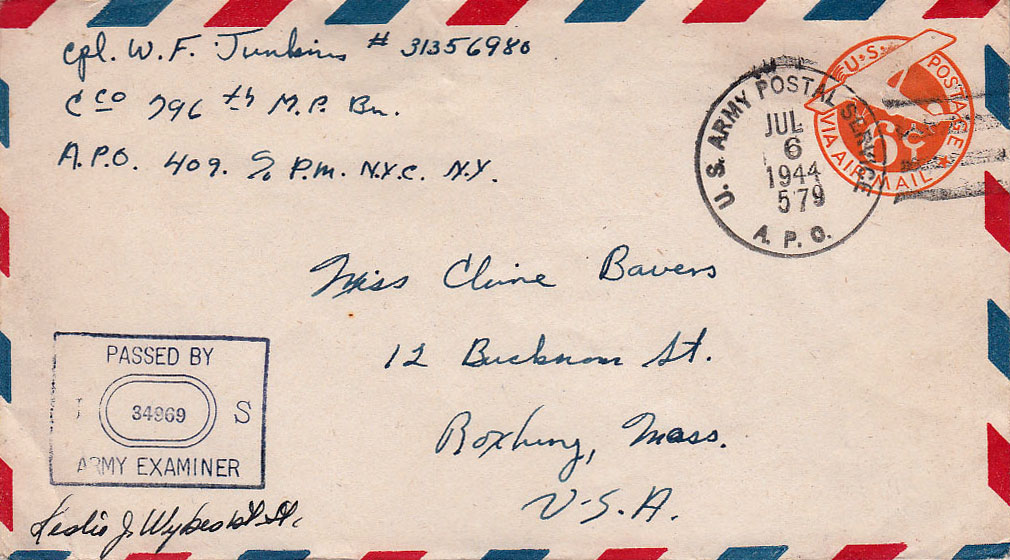 Cpl. W. F. Junkins # 31356980
C Co 796 th M.P. Bn.
A.P.O. 409. c/o P.M. N.Y.C. N.Y.
U.S. POSTAGE
6¢
VIA AIR MAIL
U.S. ARMY POSTAL SERVICE
JUL
6
1944
579
A. P. O.
Miss Claire Bavers
12 St.
Roxbury, Mass.
U.S.A.
PASSED BY
34969
S
ARMY EXAMINER
Leslie J.